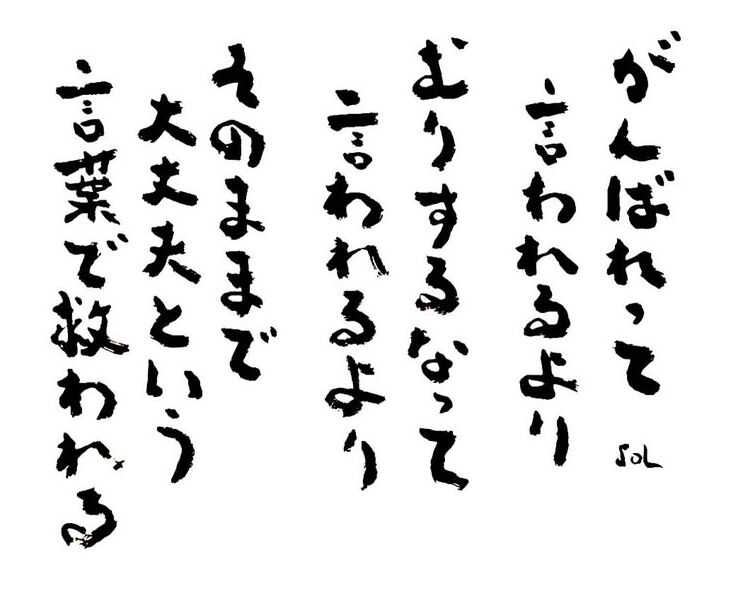 がんばれって
言われるより
むりするなって
言われるより
そのままで
大丈夫という
言葉で救われる
SOL